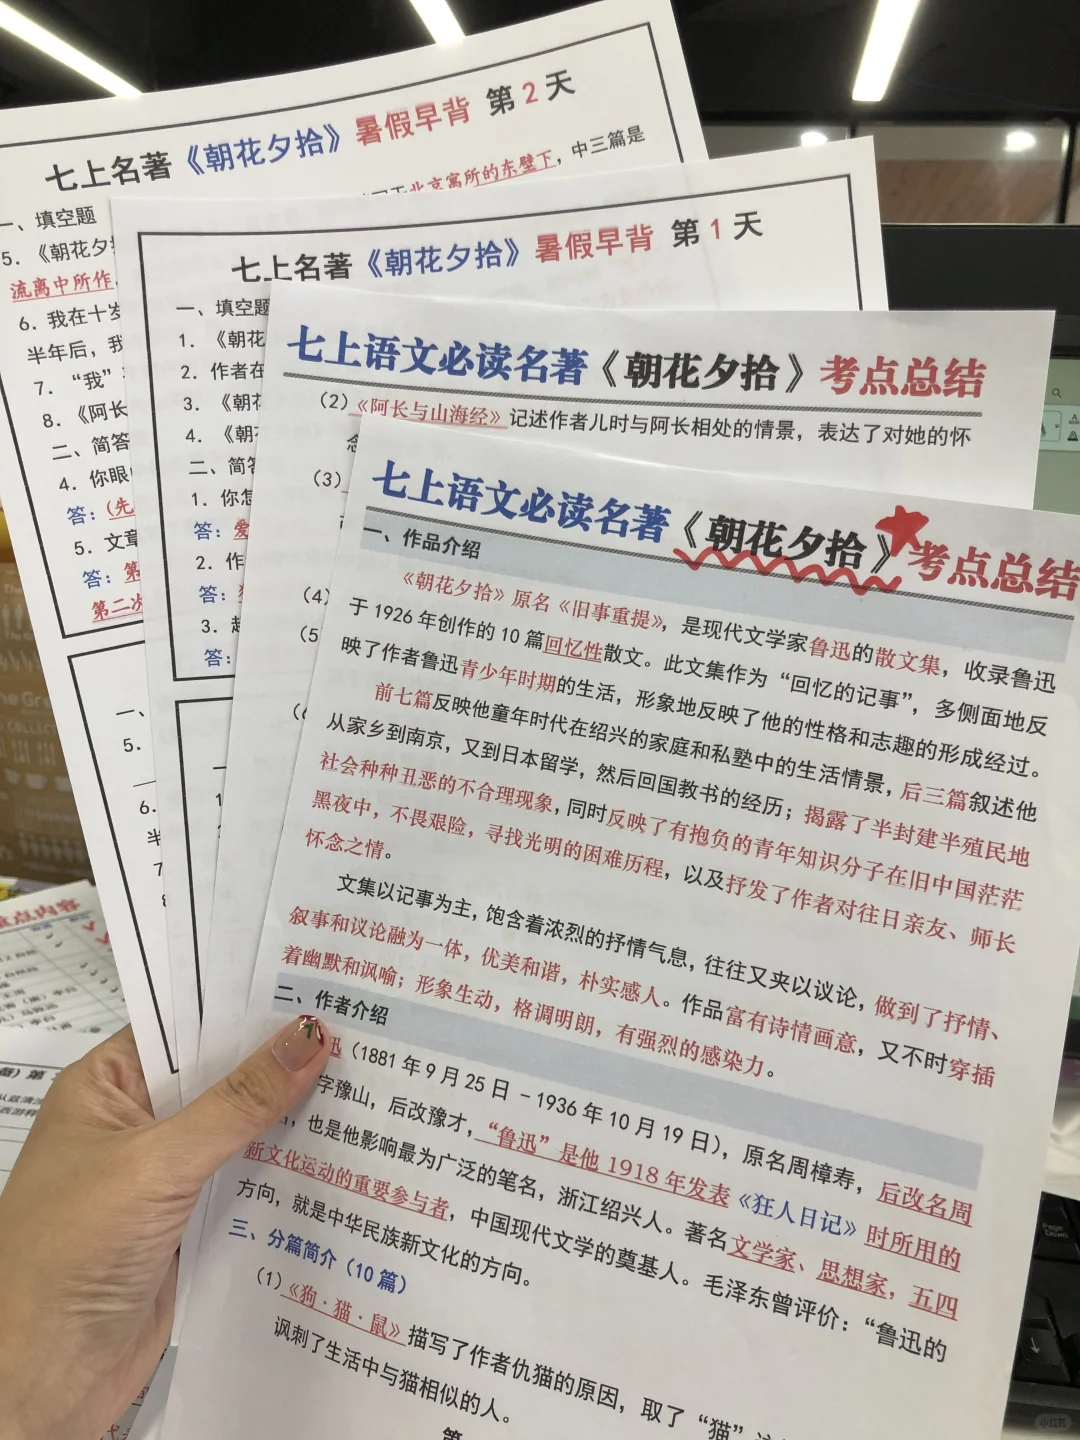 七上名著《朝花夕拾》暑假早背 第2天
一、填空题
北京寓所的东壁下，中三篇是
5.《朝花夕
流离中所作
6. 我在十岁
半年后，我
7. “我”
8.《阿长
二、简答
4. 你眼
答：(先
5. 文章
答：第
第二次
一、
5.
6.
半
7
8
七上名著《朝花夕拾》暑假早背 第1天
一、填空题
1. 《朝花
2. 作者在
3. 《朝花
4. 《朝花
二、简答
1. 你怎
答：爱
2. 作
答：
3. 赵
答：
七上语文必读名著《朝花夕拾》考点总结
(2)《阿长与山海经》记述作者儿时与阿长相处的情景，表达了对她的怀
念
(3)
(4)
(5
(6
七上语文必读名著《朝花夕拾》考点总结
一、作品介绍
《朝花夕拾》原名《旧事重提》，是现代文学家鲁迅的散文集，收录鲁迅
于1926年创作的10篇回忆性散文。此文集作为“回忆的记事”，多侧面地反
映了作者鲁迅青少年时期的生活，形象地反映了他的性格和志趣的形成经过。
前七篇反映他童年时代在绍兴的家庭和私塾中的生活情景，后三篇叙述他
从家乡到南京，又到日本留学，然后回国教书的经历；揭露了半封建半殖民地
社会种种丑恶的不合理现象，同时反映了有抱负的青年知识分子在旧中国茫茫
黑夜中，不畏艰险，寻找光明的困难历程，以及抒发了作者对往日亲友、师长
怀念之情。
文集以记事为主，饱含着浓烈的抒情气息，往往又夹以议论，做到了抒情、
叙事和议论融为一体，优美和谐，朴实感人。作品富有诗情画意，又不时穿插
着幽默和讽喻；形象生动，格调明朗，有强烈的感染力。
二、作者介绍
迅（1881年9月25日－1936年10月19日），原名周樟寿，后改名周
字豫山，后改豫才，“鲁迅”是他1918年发表《狂人日记》时所用的
，也是他影响最为广泛的笔名，浙江绍兴人。著名文学家、思想家，五四
新文化运动的重要参与者，中国现代文学的奠基人。毛泽东曾评价：“鲁迅的
方向，就是中华民族新文化的方向。
三、分篇简介（10篇）
(1)《狗·猫·鼠》描写了作者仇猫的原因，取了“猫”
讽刺了生活中与猫相似的人。
第
重点内容
Page
Down
小红书